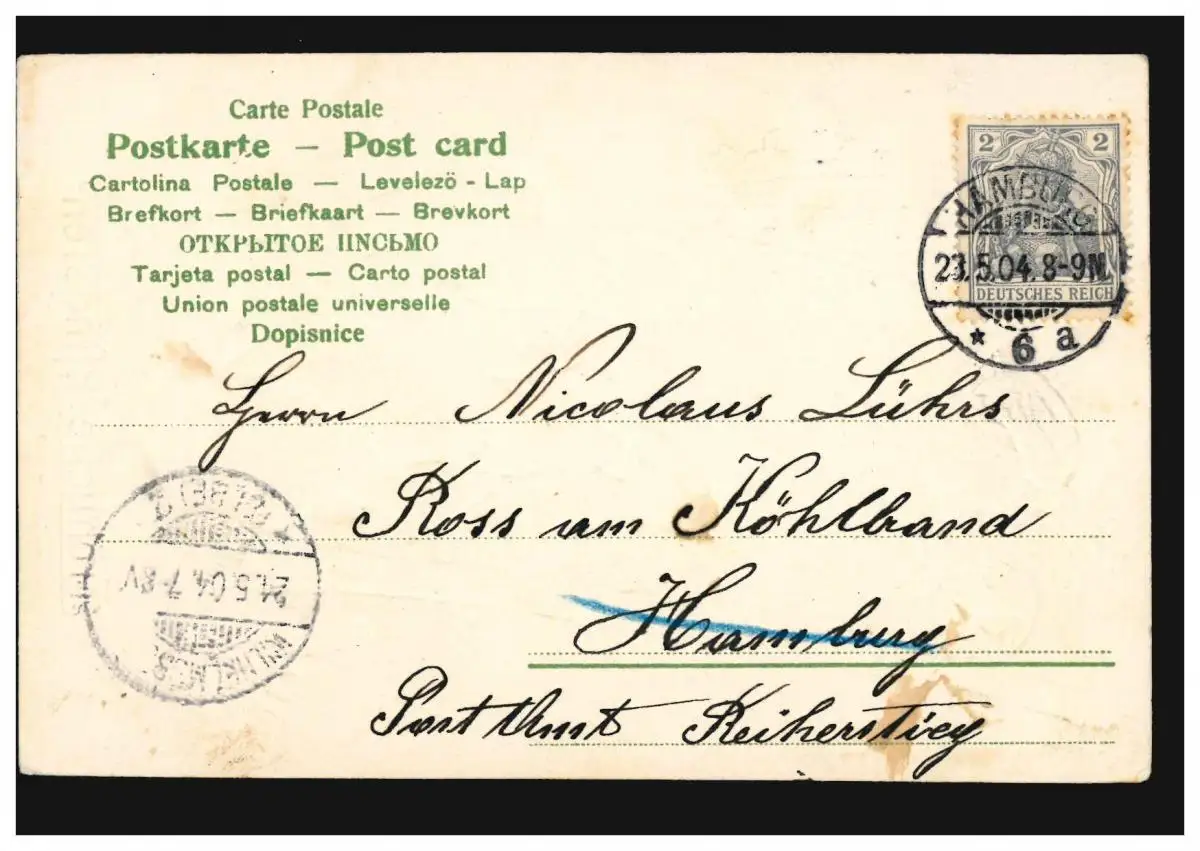 Carte Postale
Postkarte — Post card
Cartolina Postale — Levelező - Lap
Brefkort — Briefkaart — Brevkort
ОТКРЫТОЕ ПИСЬМО
Tarjeta postal — Carto postal
Union postale universelle
Dopisnice
2 2
DEUTSCHES REICH
HAMBURG
23.5.04. 8-9N.
* 6 a
Herrn Nicolaus Lührs
Ross am Köhlbrand
Hamburg
Post Amt Reiherstieg
24.5.04. 7-8V